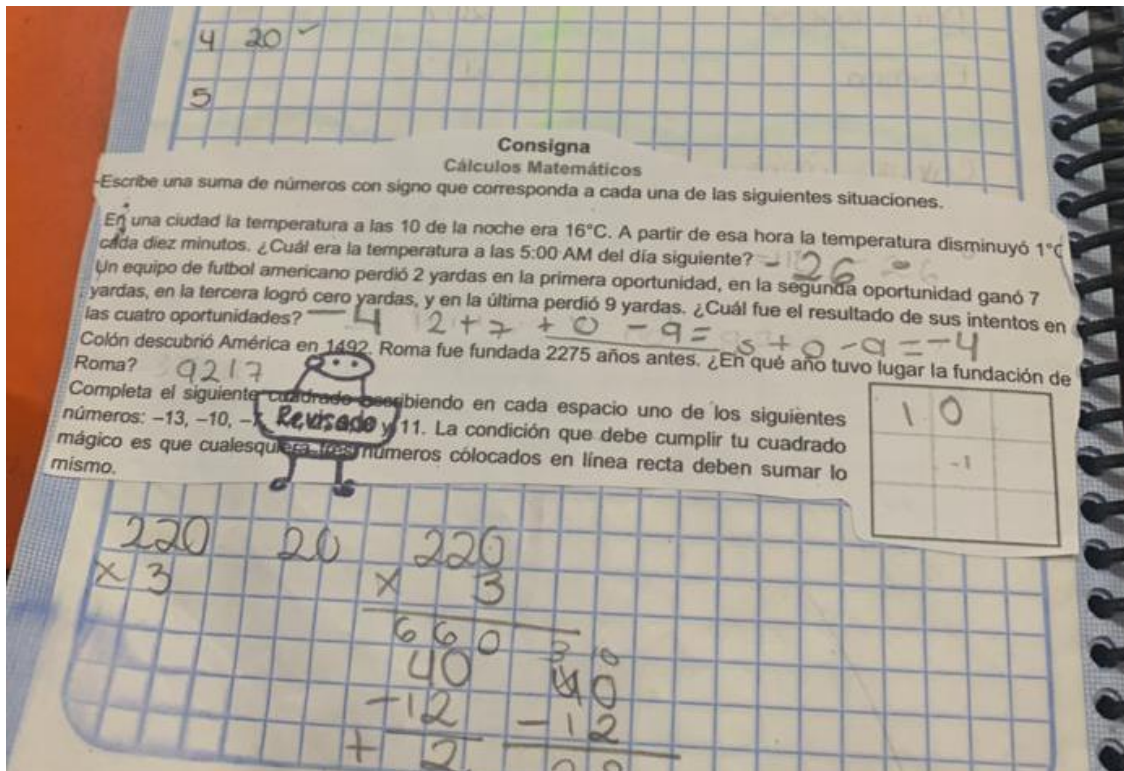 4 20 ✓
5
Consigna
Cálculos Matemáticos
-Escribe una suma de números con signo que corresponda a cada una de las siguientes situaciones.
En una ciudad la temperatura a las 10 de la noche era 16°C. A partir de esa hora la temperatura disminuyó 1°C
cada diez minutos. ¿Cuál era la temperatura a las 5:00 AM del día siguiente? - 26
Un equipo de futbol americano perdió 2 yardas en la primera oportunidad, en la segunda oportunidad ganó 7
yardas, en la tercera logró cero yardas, y en la última perdió 9 yardas. ¿Cuál fue el resultado de sus intentos en
las cuatro oportunidades? -4 2+7 +0 -9= 5+0-9=-4
Colón descubrió América en 1492. Roma fue fundada 2275 años antes. ¿En qué año tuvo lugar la fundación de
Roma? 9217
Completa el siguiente cuadrado escribiendo en cada espacio uno de los siguientes
números: –13, –10, Revisado y 11. La condición que debe cumplir tu cuadrado
mágico es que cualesquiera tres números cólocados en línea recta deben sumar lo
mismo.
1 0
-1
220 20 220
x 3 x 3
660
40 30
-12 40
+ 2 -12